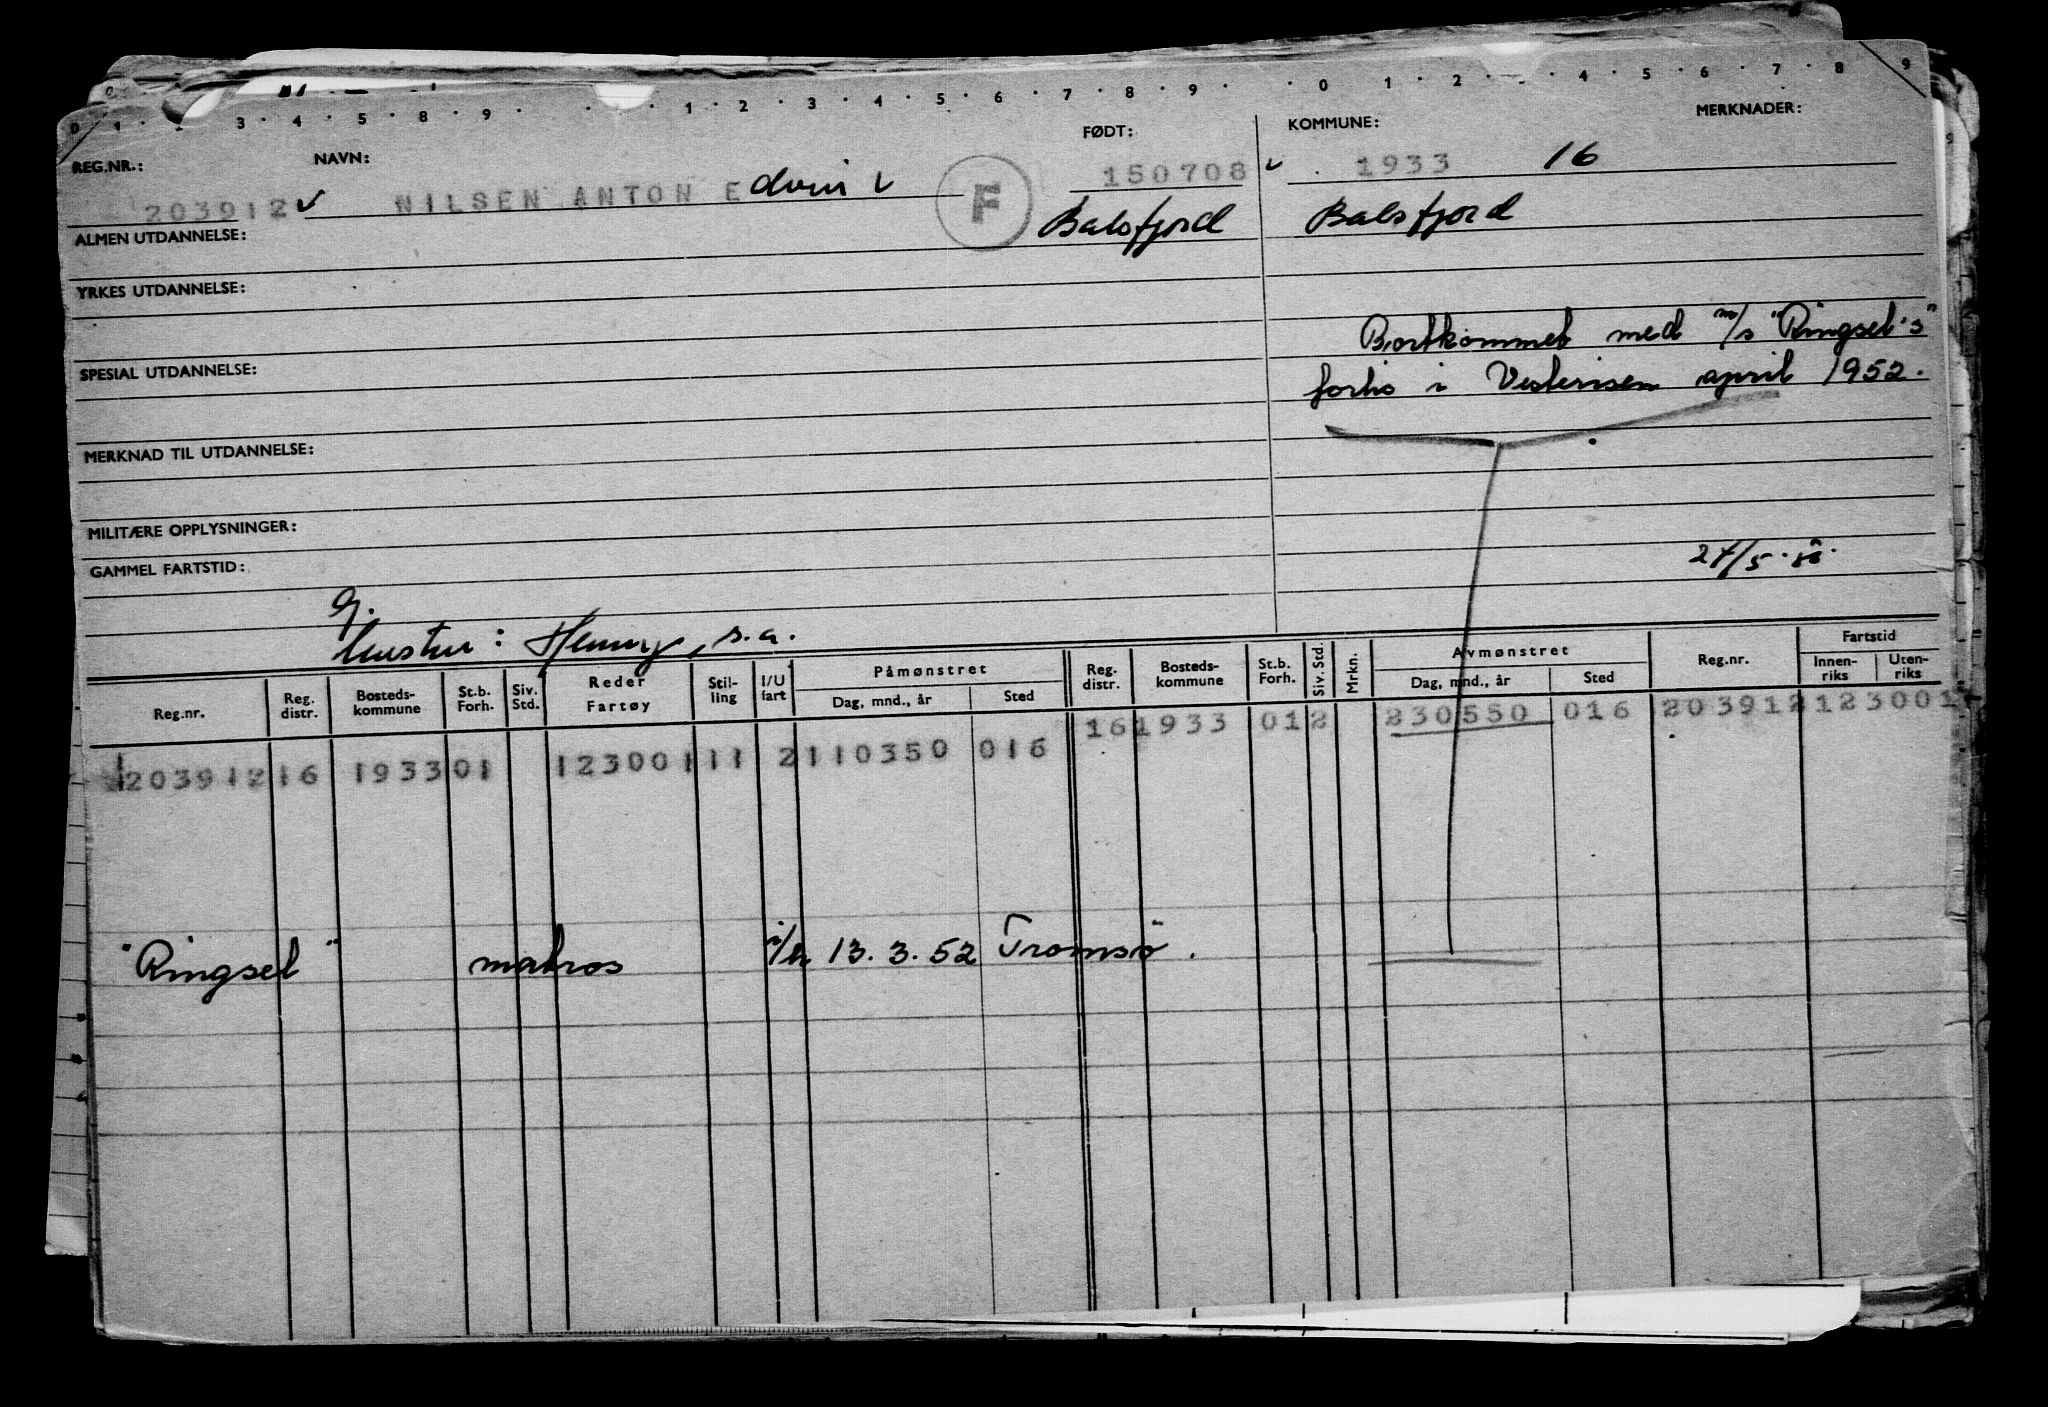 0 1 · 3 · 4 · 5 · 8 · 9 · · 1 · 2 · 3 · 4 · 5 · 6 · 7 · 8 · 9 · · 0 · 1 · 2 · · 4 · 5 · 6 · 7 · 8 · 9
REG.NR.: NAVN: FØDT: KOMMUNE: MERKNADER:
203912 ✓ NILSEN ANTON Edvin ✓ F 150708 ✓ 1933 16
ALMEN UTDANNELSE: Balsfjord Balsfjord
YRKES UTDANNELSE:
Bortkommet med m/s "Ringsel's"
SPESIAL UTDANNELSE: forlis i Vesterisen april 1952.
MERKNAD TIL UTDANNELSE:
MILITÆRE OPPLYSNINGER:
GAMMEL FARTSTID: 27/5.
g.
hustru: Henny, s.a.
Reg.nr. Reg. distr. Bosteds-kommune St.b. Forh. Siv. Std. Reder Fartøy Stil-ling I/U fart Påmønstret Dag, mnd., år Sted Reg. distr. Bosteds-kommune St.b. Forh. Siv. Std. Mrkn. Avmønstret Dag, mnd., år Sted Reg.nr. Fartstid Innen-riks Uten-riks
16 1933 01 2 230550 016 203912 123001
203912 16 1933 01 123001 11 2 110350 016
"Ringsel" matros 13.3.52 Tromsø.